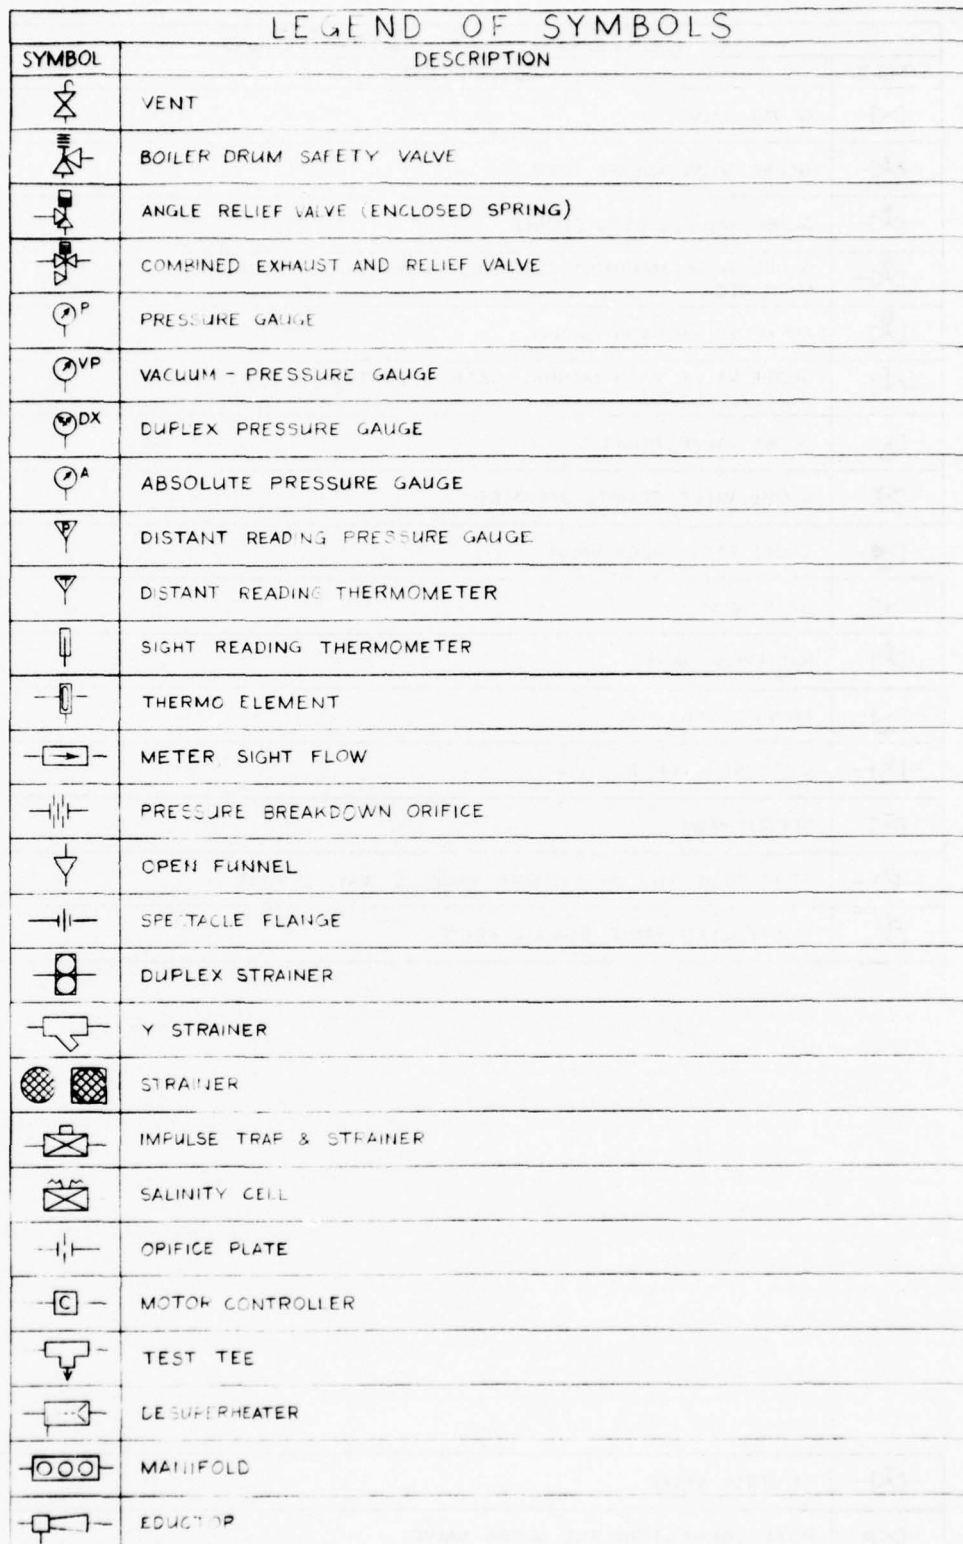 LEGEND OF SYMBOLS
SYMBOL DESCRIPTION
VENT
BOILER DRUM SAFETY VALVE
ANGLE RELIEF VALVE (ENCLOSED SPRING)
COMBINED EXHAUST AND RELIEF VALVE
P PRESSURE GAUGE
VP VACUUM - PRESSURE GAUGE
DX DUPLEX PRESSURE GAUGE
A ABSOLUTE PRESSURE GAUGE
P DISTANT READING PRESSURE GAUGE
T DISTANT READING THERMOMETER
SIGHT READING THERMOMETER
THERMO ELEMENT
METER, SIGHT FLOW
PRESSURE BREAKDOWN ORIFICE
OPEN FUNNEL
SPECTACLE FLANGE
DUPLEX STRAINER
Y STRAINER
STRAINER
IMPULSE TRAP & STRAINER
SALINITY CELL
ORIFICE PLATE
C MOTOR CONTROLLER
TEST TEE
DESUPERHEATER
MANIFOLD
EDUCTOR